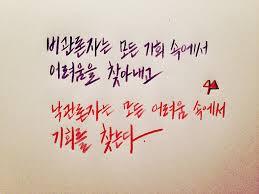 비관론자는 모든 기회 속에서
어려움을 찾아내고
낙관론자는 모든 어려움 속에서
기회를 찾는다.